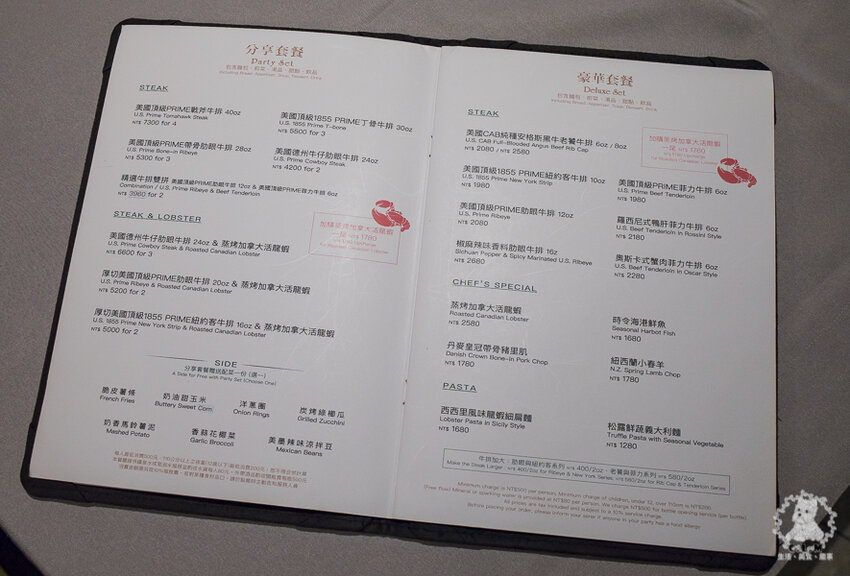 分享套餐
Party Set
包含麵包、前菜、湯品、甜點、飲品
Including Bread, Appetizer, Soup, Dessert, Drink
STEAK
美國頂級PRIME戰斧牛排 40oz
U.S. Prime Tomahawk Steak
NT$ 7300 for 4
美國頂級1855 PRIME丁骨牛排 30oz
U.S. 1855 Prime T-bone
NT$ 5500 for 3
美國頂級PRIME帶骨肋眼牛排 28oz
U.S. Prime Bone-in Ribeye
NT$ 5300 for 3
美國德州牛仔肋眼牛排 24oz
U.S. Prime Cowboy Steak
NT$ 4200 for 2
精選牛排雙拼 美國頂級PRIME肋眼牛排 12oz & 美國頂級PRIME菲力牛排 6oz
Combination / U.S. Prime Ribeye & Beef Tenderloin
NT$ 3960 for 2
STEAK & LOBSTER
加購蒸烤加拿大活龍蝦
一尾 NT$ 1780
for Roasted Canadian Lobster
美國德州牛仔肋眼牛排 24oz & 蒸烤加拿大活龍蝦
U.S. Prime Cowboy Steak & Roasted Canadian Lobster
NT$ 6600 for 3
厚切美國頂級PRIME肋眼牛排 20oz & 蒸烤加拿大活龍蝦
U.S. Prime Ribeye & Roasted Canadian Lobster
NT$ 5200 for 2
厚切美國頂級1855 PRIME紐約客牛排 16oz & 蒸烤加拿大活龍蝦
U.S. 1855 Prime New York Strip & Roasted Canadian Lobster
NT$ 5000 for 2
SIDE
分享套餐贈送配菜一份 (選一)
A Side for Free with Party Set (Choose One)
脆皮薯條
French Fries
奶油甜玉米
Buttery Sweet Corn
洋蔥圈
Onion Rings
炭烤綠櫛瓜
Grilled Zucchini
奶香馬鈴薯泥
Mashed Potato
香蒜花椰菜
Garlic Broccoli
美墨辣味涼拌豆
Mexican Beans
豪華套餐
Deluxe Set
包含麵包、前菜、湯品、甜點、飲品
Including Bread, Appetizer, Soup, Dessert, Drink
STEAK
加購蒸烤加拿大活龍蝦
一尾 NT$ 1780
NT$1780 Upcharge
for Roasted Canadian Lobster
美國CAB純種安格斯黑牛老饕牛排 6oz / 8oz
U.S. CAB Full-Blooded Angus Beef Rib Cap
NT$ 2080 / NT$ 2580
美國頂級1855 PRIME紐約客牛排 10oz
U.S. 1855 Prime New York Strip
NT$ 1980
美國頂級PRIME菲力牛排 6oz
U.S. Prime Beef Tenderloin
NT$ 1980
美國頂級PRIME肋眼牛排 12oz
U.S. Prime Ribeye
NT$ 2080
羅西尼式鴨肝菲力牛排 6oz
U.S. Beef Tenderloin in Rossini Style
NT$ 2180
椒麻辣味香料肋眼牛排 16z
Sichuan Pepper & Spicy Marinated U.S. Ribeye
NT$ 2680
奧斯卡式蟹肉菲力牛排 6oz
U.S. Beef Tenderloin in Oscar Style
NT$ 2280
CHEF'S SPECIAL
蒸烤加拿大活龍蝦
Roasted Canadian Lobster
NT$ 2580
時令海港鮮魚
Seasonal Harbot Fish
NT$ 1680
丹麥皇冠帶骨豬里肌
Danish Crown Bone-in Pork Chop
NT$ 1780
紐西蘭小春羊
N.Z. Spring Lamb Chop
NT$ 1780
PASTA
西西里風味龍蝦細扁麵
Lobster Pasta in Sicily Style
NT$ 1680
松露鮮蔬義大利麵
Truffle Pasta with Seasonal Vegetable
NT$ 1280
牛排加大，肋眼與紐約客系列 NT$ 400/2oz，老饕與菲力系列 NT$ 580/2oz
Make the Steak Larger, NT$ 400/2oz for Ribeye & New York Series, NT$ 580/2oz for Rib Cap & Tenderloin Series
Minimum charge is NT$500 per person, Minimum charge of children, under 12, over 110cm is NT$200.
(Free flow) Mineral or sparkling water is provided at NT$80 per person. We charge NT$500 for bottle opening service (per bottle)
All prices are fixed and subjected to a 10% service charge.
Before placing your order, please inform your server if anyone in your party has a food allergy
生活、美食、趣事